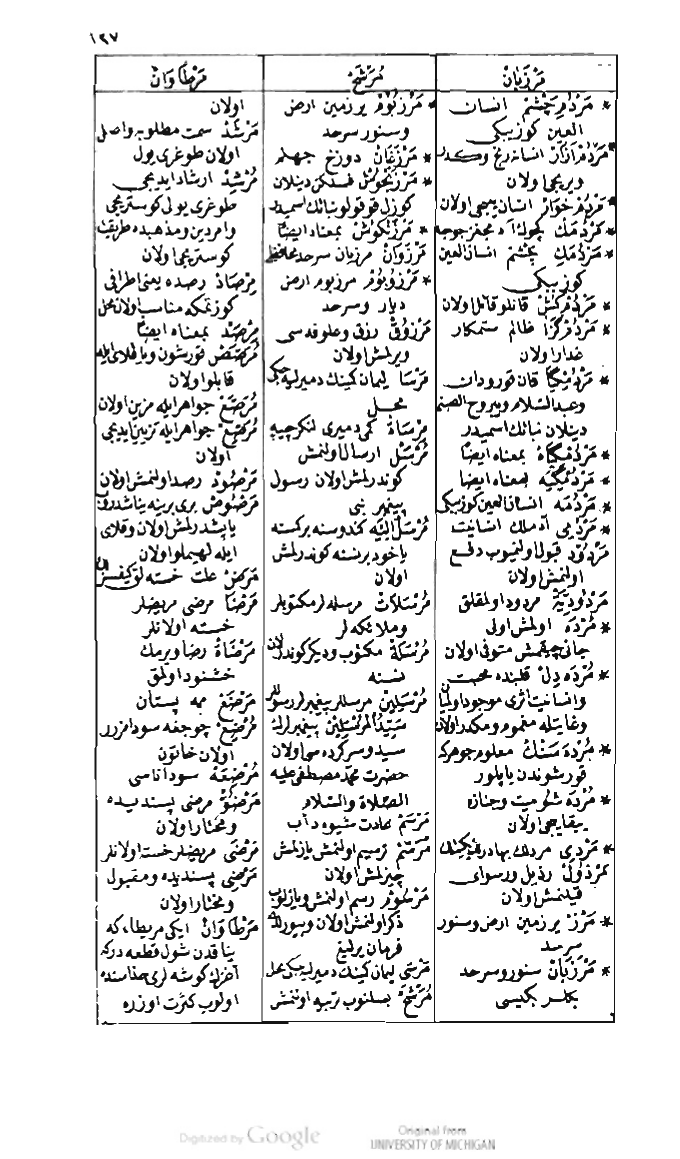 ١٢٧
مَرْزَبَانْ
* مَرْدُمِ چَشْمْ انسان
العين كوز ببكى
* مَرْدُمْ آزَارْ انسانه رنج وكدر
ويريجى اولان
* مَرْدُمْ خَوَارْ انسان ييجى اولان
* مَرْدُمَكْ كوچك آدمجغز جوجه
* مَرْدُمَكِ چَشْمْ انسان العين
كوز ببكى
* مَرْدُمْ كُشْ قانلو قاتل اولان
* مَرْدُمْ گَزَا ظالم ستمكار
غدار اولان
* مَرْدُمْ گِيَا قان قورودان
وعبد السلام ويبروح الصنم
دينلان نباتك اسميدر
* مَرْدُمْ گِيَاهْ بمعناه ايضا
* مَرْدُمْ گِيَهْ بمعناه ايضا
* مَرْدُمَه انسان العين كوز ببكى
* مَرْدُمِى آدملك انسانيت
مَرْدُودْ قبول اولنميوب دفع
اولنمش اولان
مَرْدُودِيَّتْ مردود اولمقلق
* مُرْدَه اولمش اولى
جانى چيقمش متوفى اولان
* مُرْدَه دِلْ قلبنده محبت
وانسانيت اثرى موجود اولميان
وغايتله مغموم ومكدر اولان
* مُرْدَه سَنْكْ معلوم جوهركه
قورشوندن ياپلور
* مُرْدَه شُو ميت وجنازه
ييقايجى اولان
* مَرْدِى مردلك بهادرلق يكيتلك
مَرْذُولْ رذيل ورسواى
قيلنمش اولان
* مَرْزْ ير زمين ارض وسنور
سرحد
* مَرْزَبَانْ سنور وسرحد
بكلر بكيسى
مُرَشَّحْ
* مَرْزِبُومْ ير زمين ارض
وسنور سرحد
* مَرْزَغَانْ دوزخ جهنم
* مَرْزَنْكُوشْ فسلكن دينلان
كوزل قوقولو نباتك اسميدر
* مَرْزَنْكُوشْ بمعناه ايضا
مَرْزَوَانْ مرزبان سرحد محافظى
* مَرْزُوبُومْ مرزبوم ارض
ديار وسرحد
مَرْزُوقْ رزق وعلوفه سى
ويرلمش اولان
مَرْسَا ليمان كمينك دميرليه جكى
محل
مِرْسَاةْ كمى دميرى لنكر چپه
مُرْسَلْ ارسال اولنمش
كوندرلمش اولان رسول
پيغمبر نبى
مُرْسَلْ اِلَيْهِ كندوسنه بركمسه
ياخود برنسنه كوندرلمش
اولان
مُرْسَلَاتْ مرسله لر مكتوبلر
وملائكه لر
مُرْسَلَةْ مكتوب وديكر كوندريلان
نسنه
مُرْسَلِينْ مرسللر پيغمبرلر رسوللر
سَيِّدُ الْمُرْسَلِينْ پيغمبرلرك
سيد وسركرده سى اولان
حضرت محمد مصطفى عليه
الصلاة والسلام
مَرْسَمْ عادت شيوه دأب
مُرَسَّمْ ترسيم اولنمش يازلمش
چيزلمش اولان
مَرْسُومْ رسم اولنمش ويازلوب
ذكر اولنمش اولان وبيورلدى
فرمان يرليغ
مَرْسَى ليمان كمينك دميرليه جكى محل
مُرَشَّحْ بسلنوب تربيه اولنمش
مَرْطَاوَانْ
اولان
مَرْشَدْ سمت مطلوبه واصل
اولان طوغرى يول
مُرْشِدْ ارشاد ايديجى
طوغرى يولى كوستريجى
وامر دين ومذهبده طريقت
كوستريجى اولان
مِرْصَادْ رصده يعنى اطرافى
كوزتمكه مناسب اولان محل
مِرْصَدْ بمعناه ايضا
مُرَصَّصْ قورشون ويا قلاى ايله
قابلو اولان
مُرَصَّعْ جواهر ايله مزين اولان
مُرَصِّعْ جواهر ايله تزيين ايديجى
اولان
مَرْصُودْ رصد اولنمش اولان
مَرْصُوصْ برى برينه يناشدرلوب
ياپشدرلمش اولان وقلاى
ايله لهيملو اولان
مَرَضْ علت خسته لق كيفسزلك
مَرْضَا مرضى مريضلر
خسته اولانلر
مَرْضَاةْ رضا ويرمك
خشنود اولمق
مَرْضَعْ ممه پستان
مُرْضِعْ چوجغه سود امزرر
اولان خاتون
مُرْضِعَه سود اناسى
مَرْضُوّْ مرضى پسنديده
ومختار اولان
مَرْضَى مريضلر خسته اولانلر
مَرْضِى پسنديده ومقبول
ومختار اولان
مَرْطَاوَانْ ايكى مريطاء كه
يناقدن شول قطعه دركه
آغزك كوشه لرى حذاسنده
اولوب كثرت اوزره
Digitized by Google
Original from
UNIVERSITY OF MICHIGAN